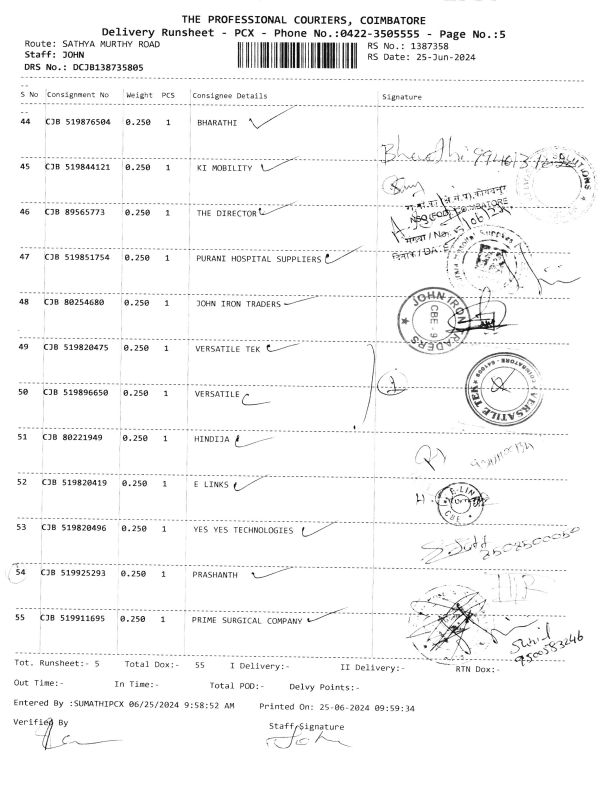 THE PROFESSIONAL COURIERS, COIMBATORE
Delivery Runsheet - PCX - Phone No.:0422-3505555 - Page No.:5
Route: SATHYA MURTHY ROAD RS No.: 1387358
Staff: JOHN RS Date: 25-Jun-2024
DRS No.: DCJB138735805
S No Consignment No Weight PCS Consignee Details Signature
44 CJB 519876504 0.250 1 BHARATHI
Bharathi
45 CJB 519844121 0.250 1 KI MOBILITY
46 CJB 89565773 0.250 1 THE DIRECTOR
47 CJB 519851754 0.250 1 PURANI HOSPITAL SUPPLIERS
48 CJB 80254680 0.250 1 JOHN IRON TRADERS
JOHN IRON TRADERS
CBE - 9
49 CJB 519820475 0.250 1 VERSATILE TEK
50 CJB 519896650 0.250 1 VERSATILE
VERSATILE TEK
COIMBATORE
51 CJB 80221949 0.250 1 HINDIJA
52 CJB 519820419 0.250 1 E LINKS
CBE
53 CJB 519820496 0.250 1 YES YES TECHNOLOGIES
54 CJB 519925293 0.250 1 PRASHANTH
55 CJB 519911695 0.250 1 PRIME SURGICAL COMPANY
9500583246
Tot. Runsheet:- 5 Total Dox:- 55 I Delivery:- II Delivery:- RTN Dox:-
Out Time:- In Time:- Total POD:- Delvy Points:-
Entered By :SUMATHIPCX 06/25/2024 9:58:52 AM Printed On: 25-06-2024 09:59:34
Verified By Staff Signature
John